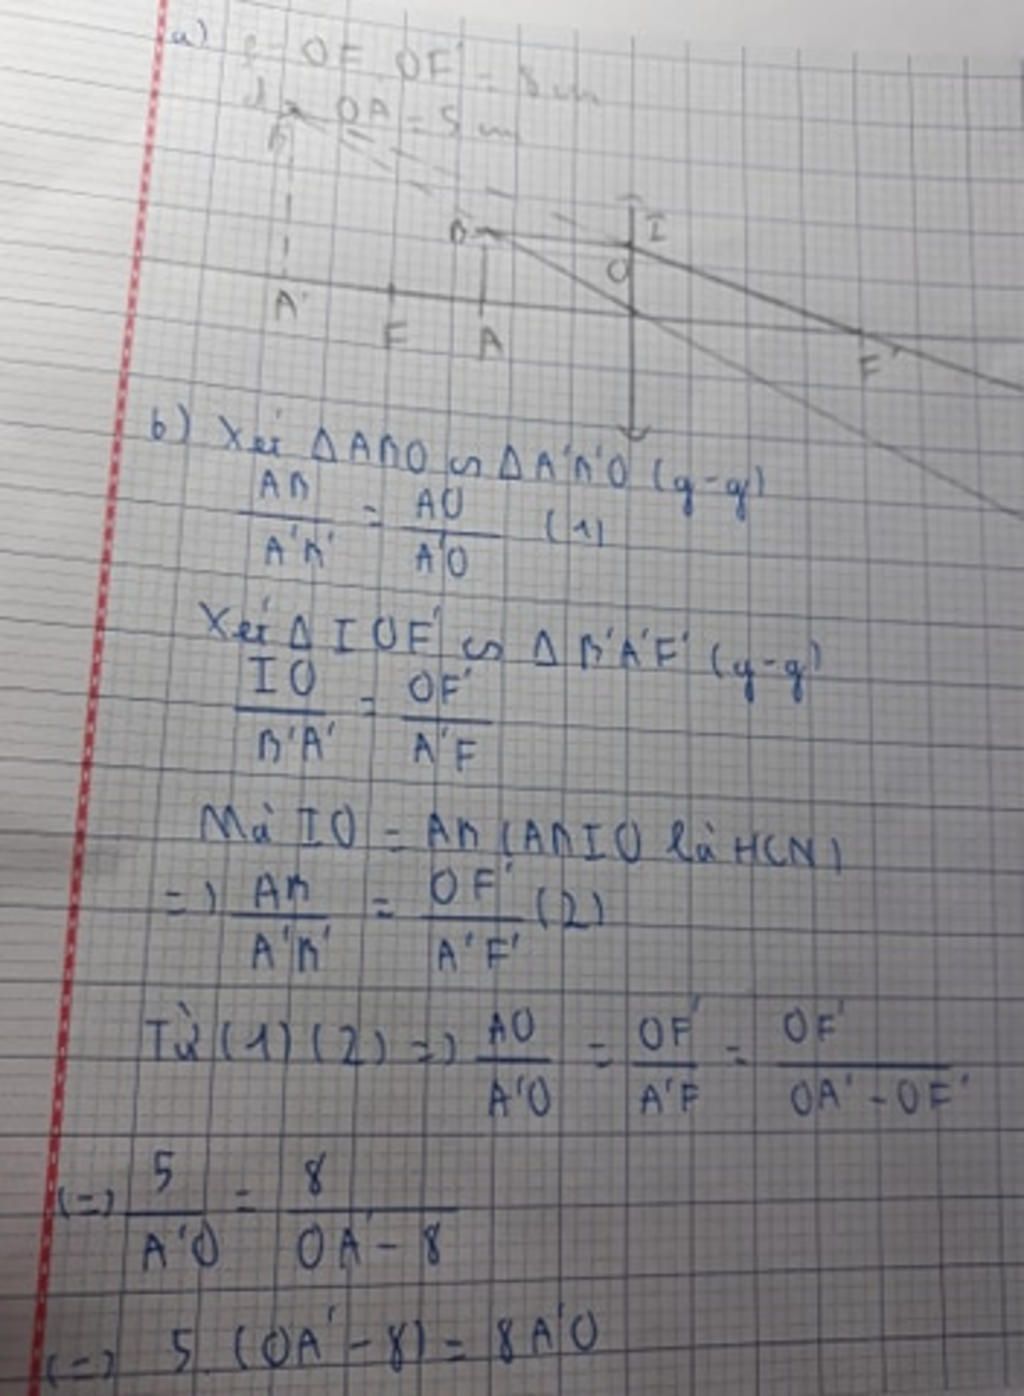 a) f = OF = OF' = 8 cm
d = OA = 5 cm
B'
B I
O
A' F A F'
b) Xét Δ ABO ∽ Δ A'B'O (g-g)
AB / A'B' = AO / A'O (1)
Xét Δ IOF' ∽ Δ B'A'F' (g-g)
IO / B'A' = OF' / A'F
Mà IO = AB (ABIO là HCN)
=> AB / A'B' = OF' / A'F' (2)
Từ (1) (2) => AO / A'O = OF' / A'F = OF' / OA' - OF'
(=) 5 / A'O = 8 / OA' - 8
(=) 5. (OA' - 8) = 8 A'O